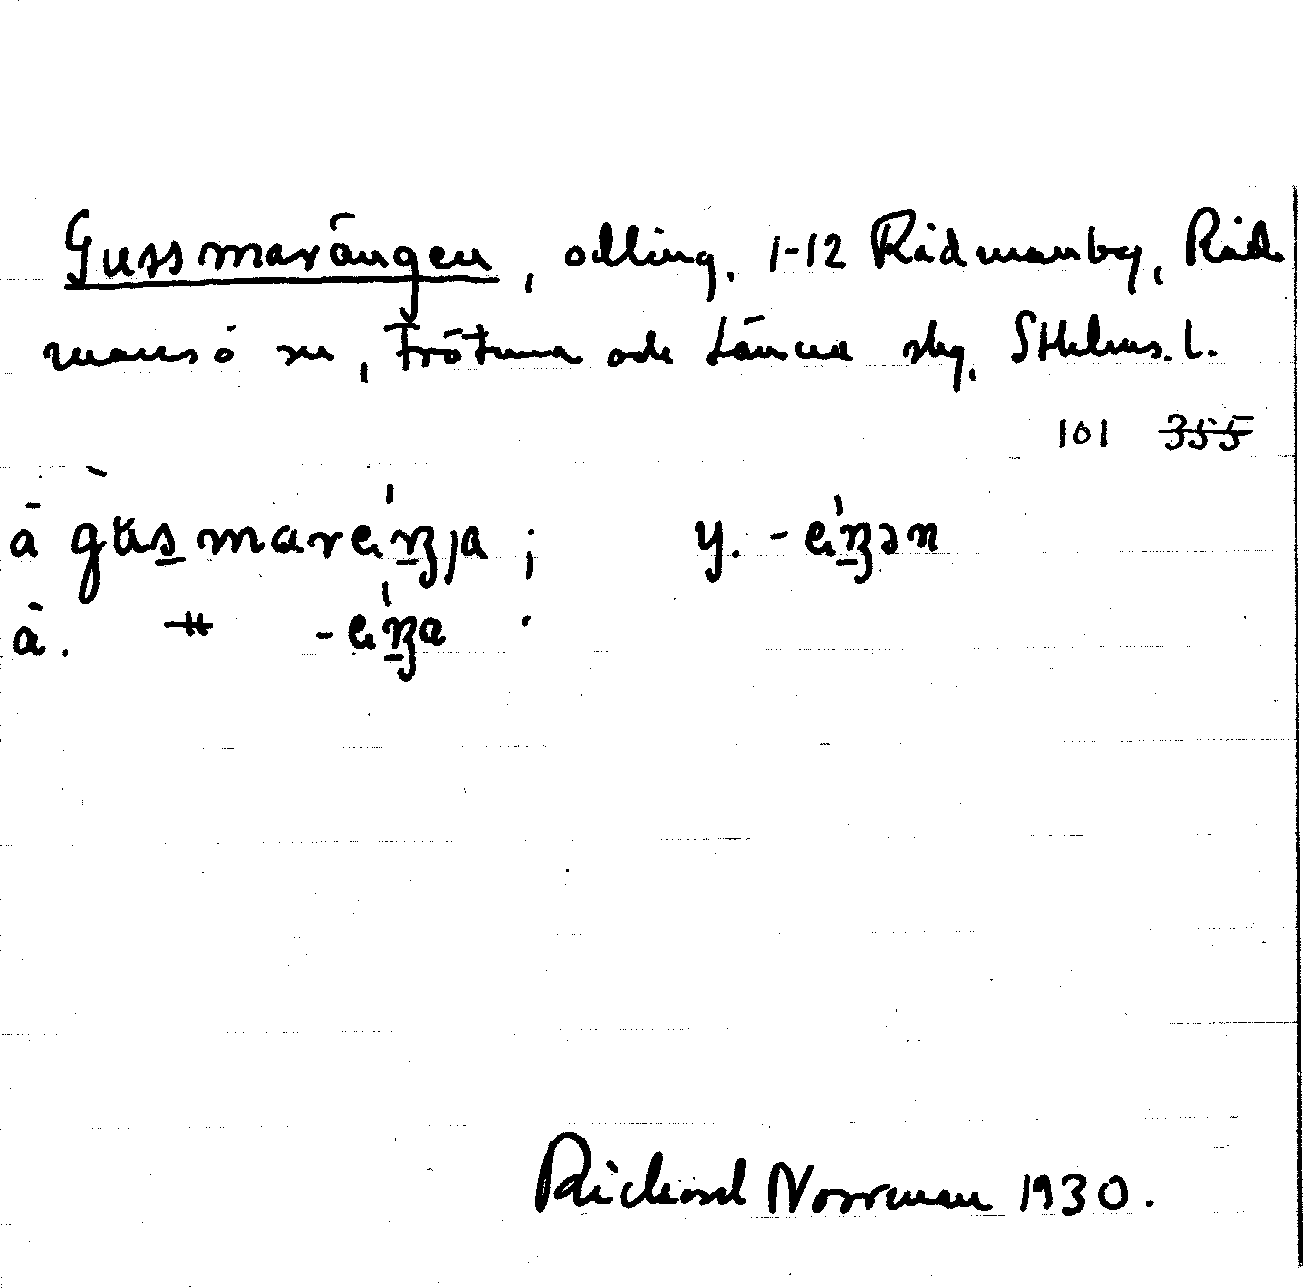 Gussmarängen, odling, 1-12 Rådmanby, Råd
mansö sn, Frötuna och Länna skg, Sthlms. l.
101 355
å gusmareŋja; y. - eŋən
ä. -〃- -eŋa
Rickard Norrman 1930.